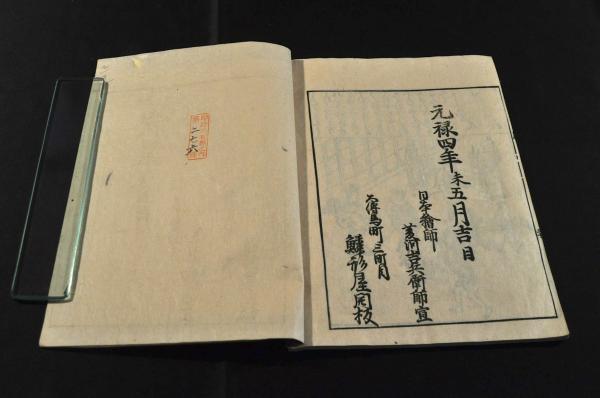 元禄四年未五月吉日
日本繪師
菱河吉兵衛師宣
大傳馬町三町目
鱗形屋開板
二七六